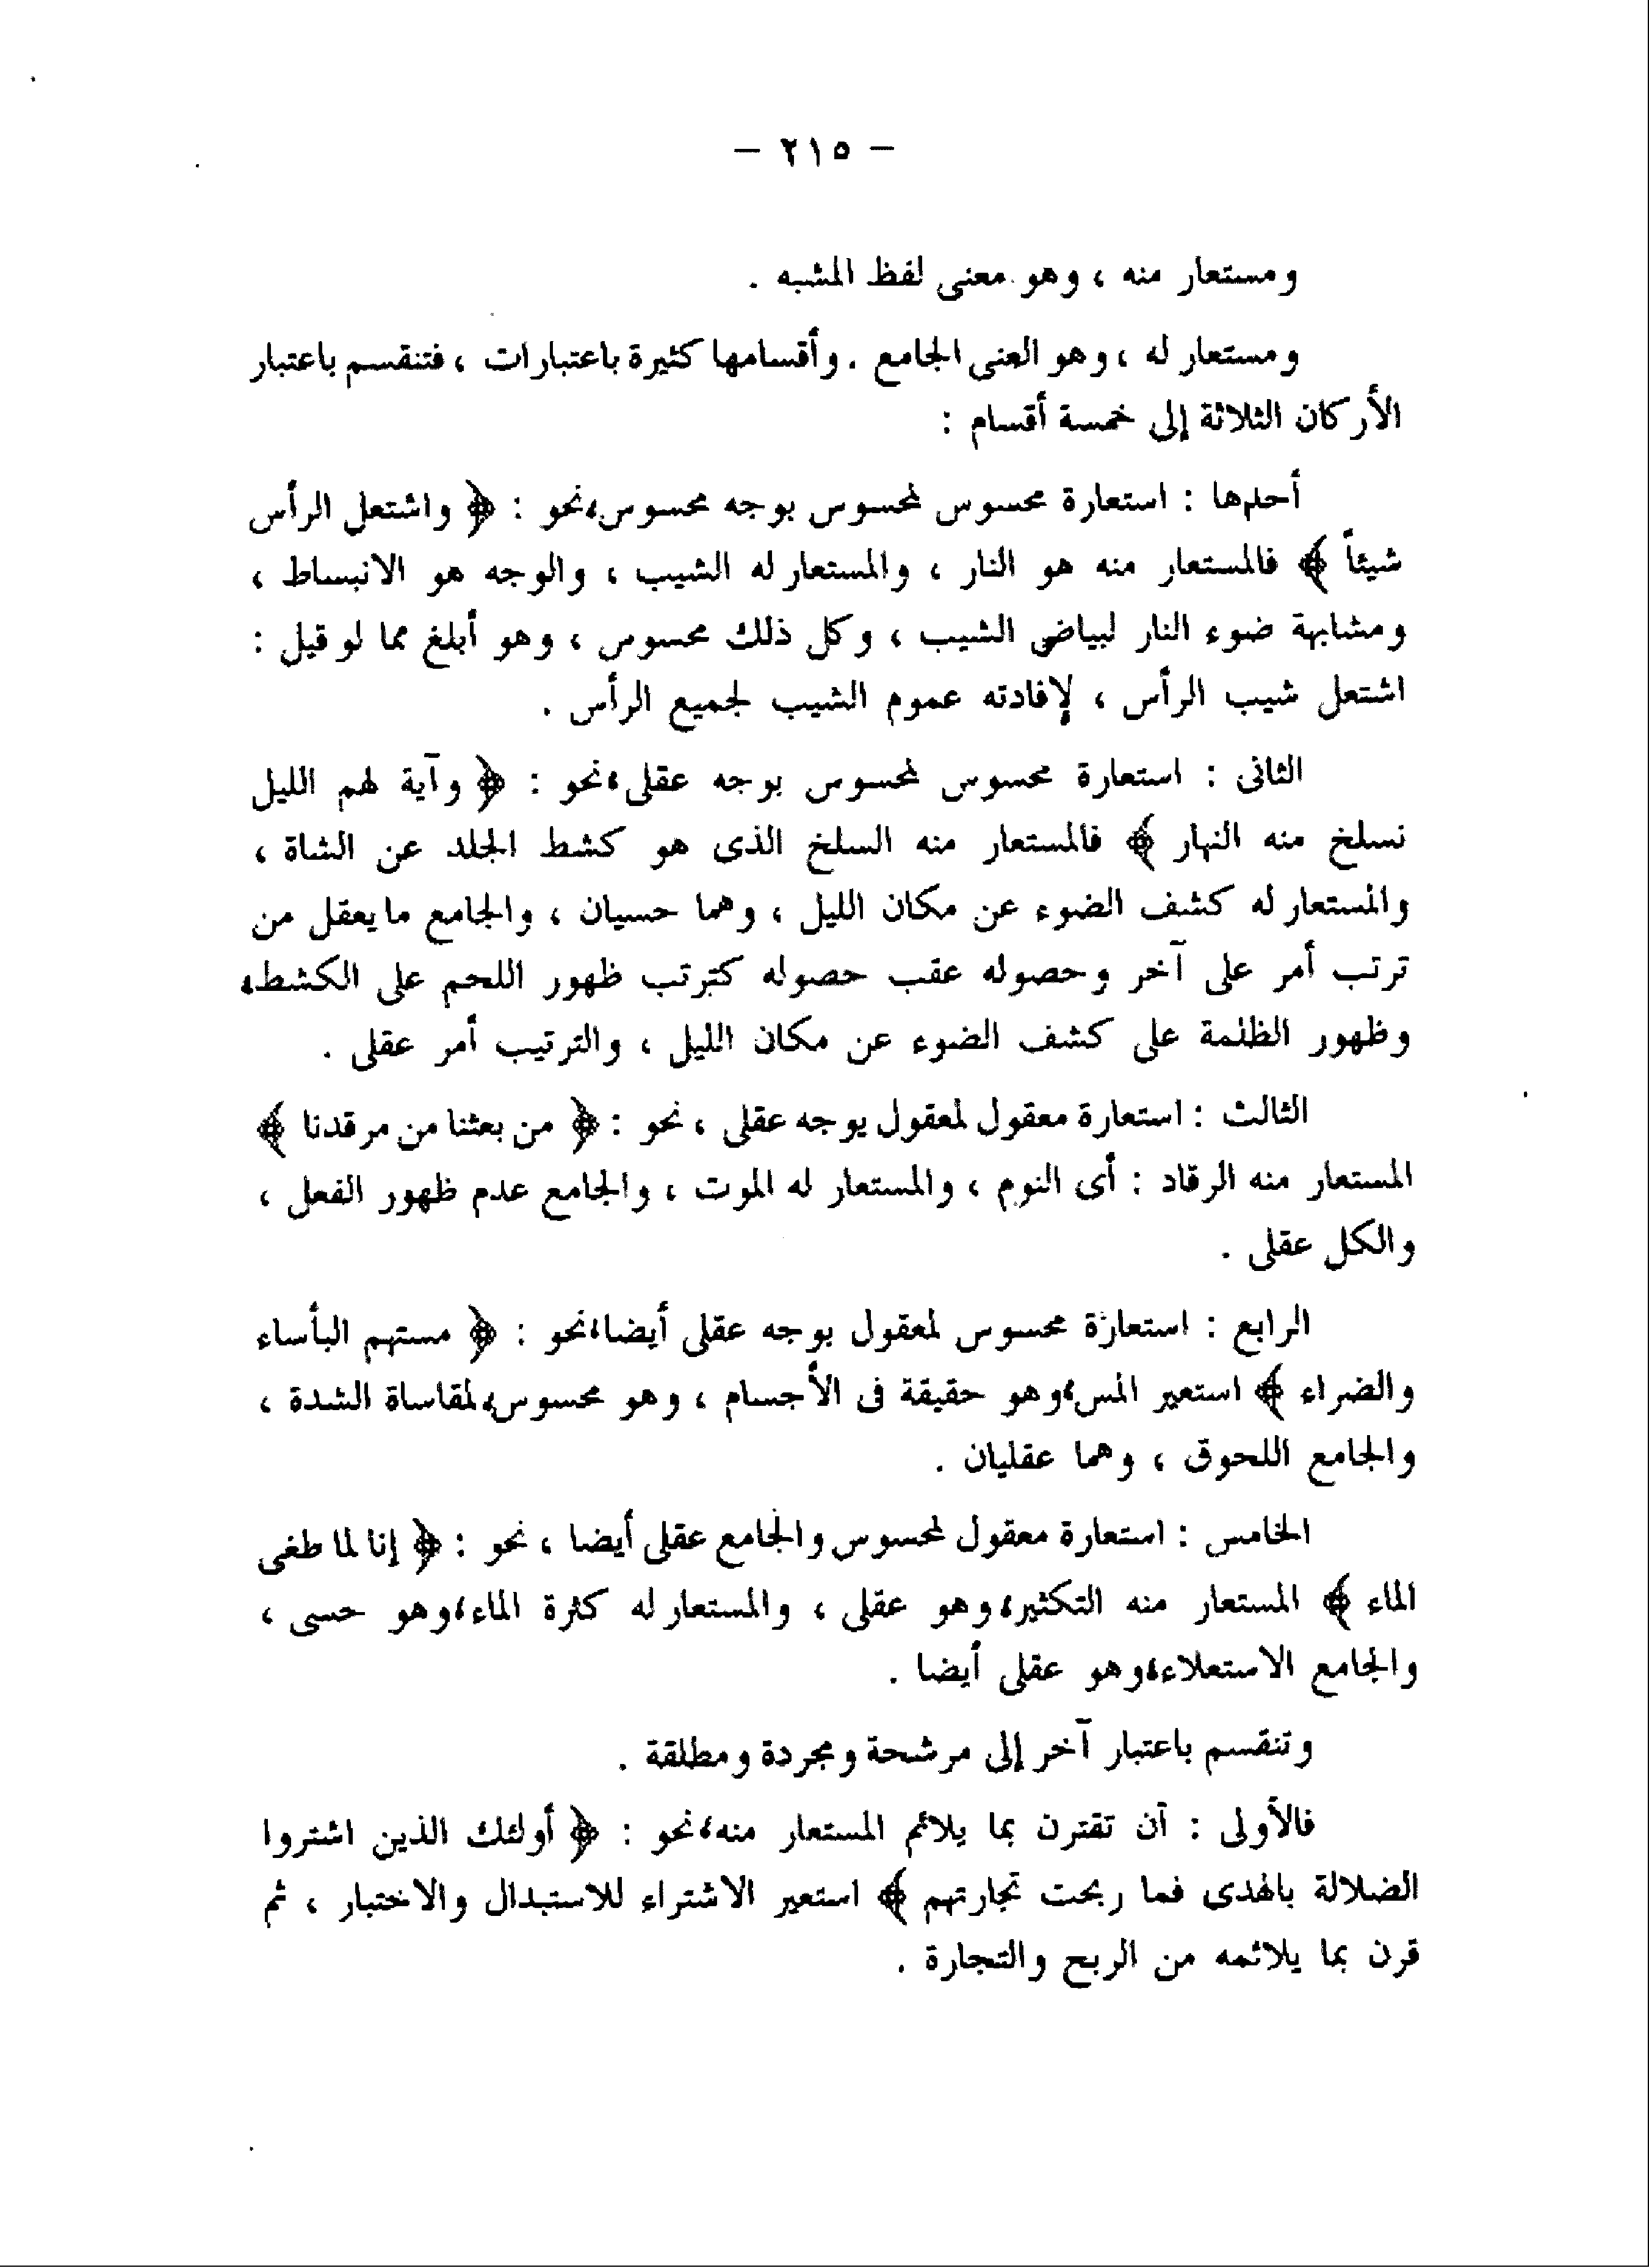 — ٢١٥ —
ومستعار منه ، وهو معنى لفظ المشبه .
ومستعار له ، وهو العنى الجامع . وأقسامها كثيرة باعتبارات ، فتنقسم باعتبار
الأركان الثلاثة إلى خمسة أقسام :
أحدها : استعارة محسوس لمحسوس بوجه محسوس،نحو : ﴿ واشتعل الرأس
شيئاً ﴾ فالمستعار منه هو النار ، والمستعار له الشيب ، والوجه هو الانبساط ،
ومشابهة ضوء النار لبياض الشيب ، وكل ذلك محسوس ، وهو أبلغ مما لو قيل :
اشتعل شيب الرأس ، لإفادته عموم الشيب لجميع الرأس .
الثانى : استعارة محسوس لمحسوس بوجه عقلى،نحو : ﴿ وآية لهم الليل
نسلخ منه النهار ﴾ فالمستعار منه السلخ الذى هو كشط الجلد عن الشاة ،
والمستعار له كشف الضوء عن مكان الليل ، وهما حسيان ، والجامع ما يعقل من
ترتب أمر على آخر وحصوله عقب حصوله كترتب ظهور اللحم على الكشط،
وظهور الظلمة على كشف الضوء عن مكان الليل ، والترتيب أمر عقلى .
الثالث : استعارة معقول لمعقول بوجه عقلى ، نحو : ﴿ من بعثنا من مرقدنا ﴾
المستعار منه الرقاد : أى النوم ، والمستعار له الموت ، والجامع عدم ظهور الفعل ،
والكل عقلى .
الرابع : استعارة محسوس لمعقول بوجه عقلى أيضا،نحو : ﴿ مستهم البأساء
والضراء ﴾ استعير المس،وهو حقيقة فى الأجسام ، وهو محسوس،لمقاساة الشدة ،
والجامع اللحوق ، وهما عقليان .
الخامس : استعارة معقول لمحسوس والجامع عقلى أيضا ، نحو : ﴿ إنا لما طغى
الماء ﴾ المستعار منه التكثير،وهو عقلى ، والمستعار له كثرة الماء،وهو حسى ،
والجامع الاستعلاء،وهو عقلى أيضا .
وتنقسم باعتبار آخر إلى مرشحة ومجردة ومطلقة .
فالأولى : أن تقترن بما يلائم المستعار منه،نحو : ﴿ أولئك الذين اشتروا
الضلالة بالهدى فما ربحت تجارتهم ﴾ استعير الاشتراء للاستبدال والاختبار ، ثم
قرن بما يلائمه من الربح والتجارة .